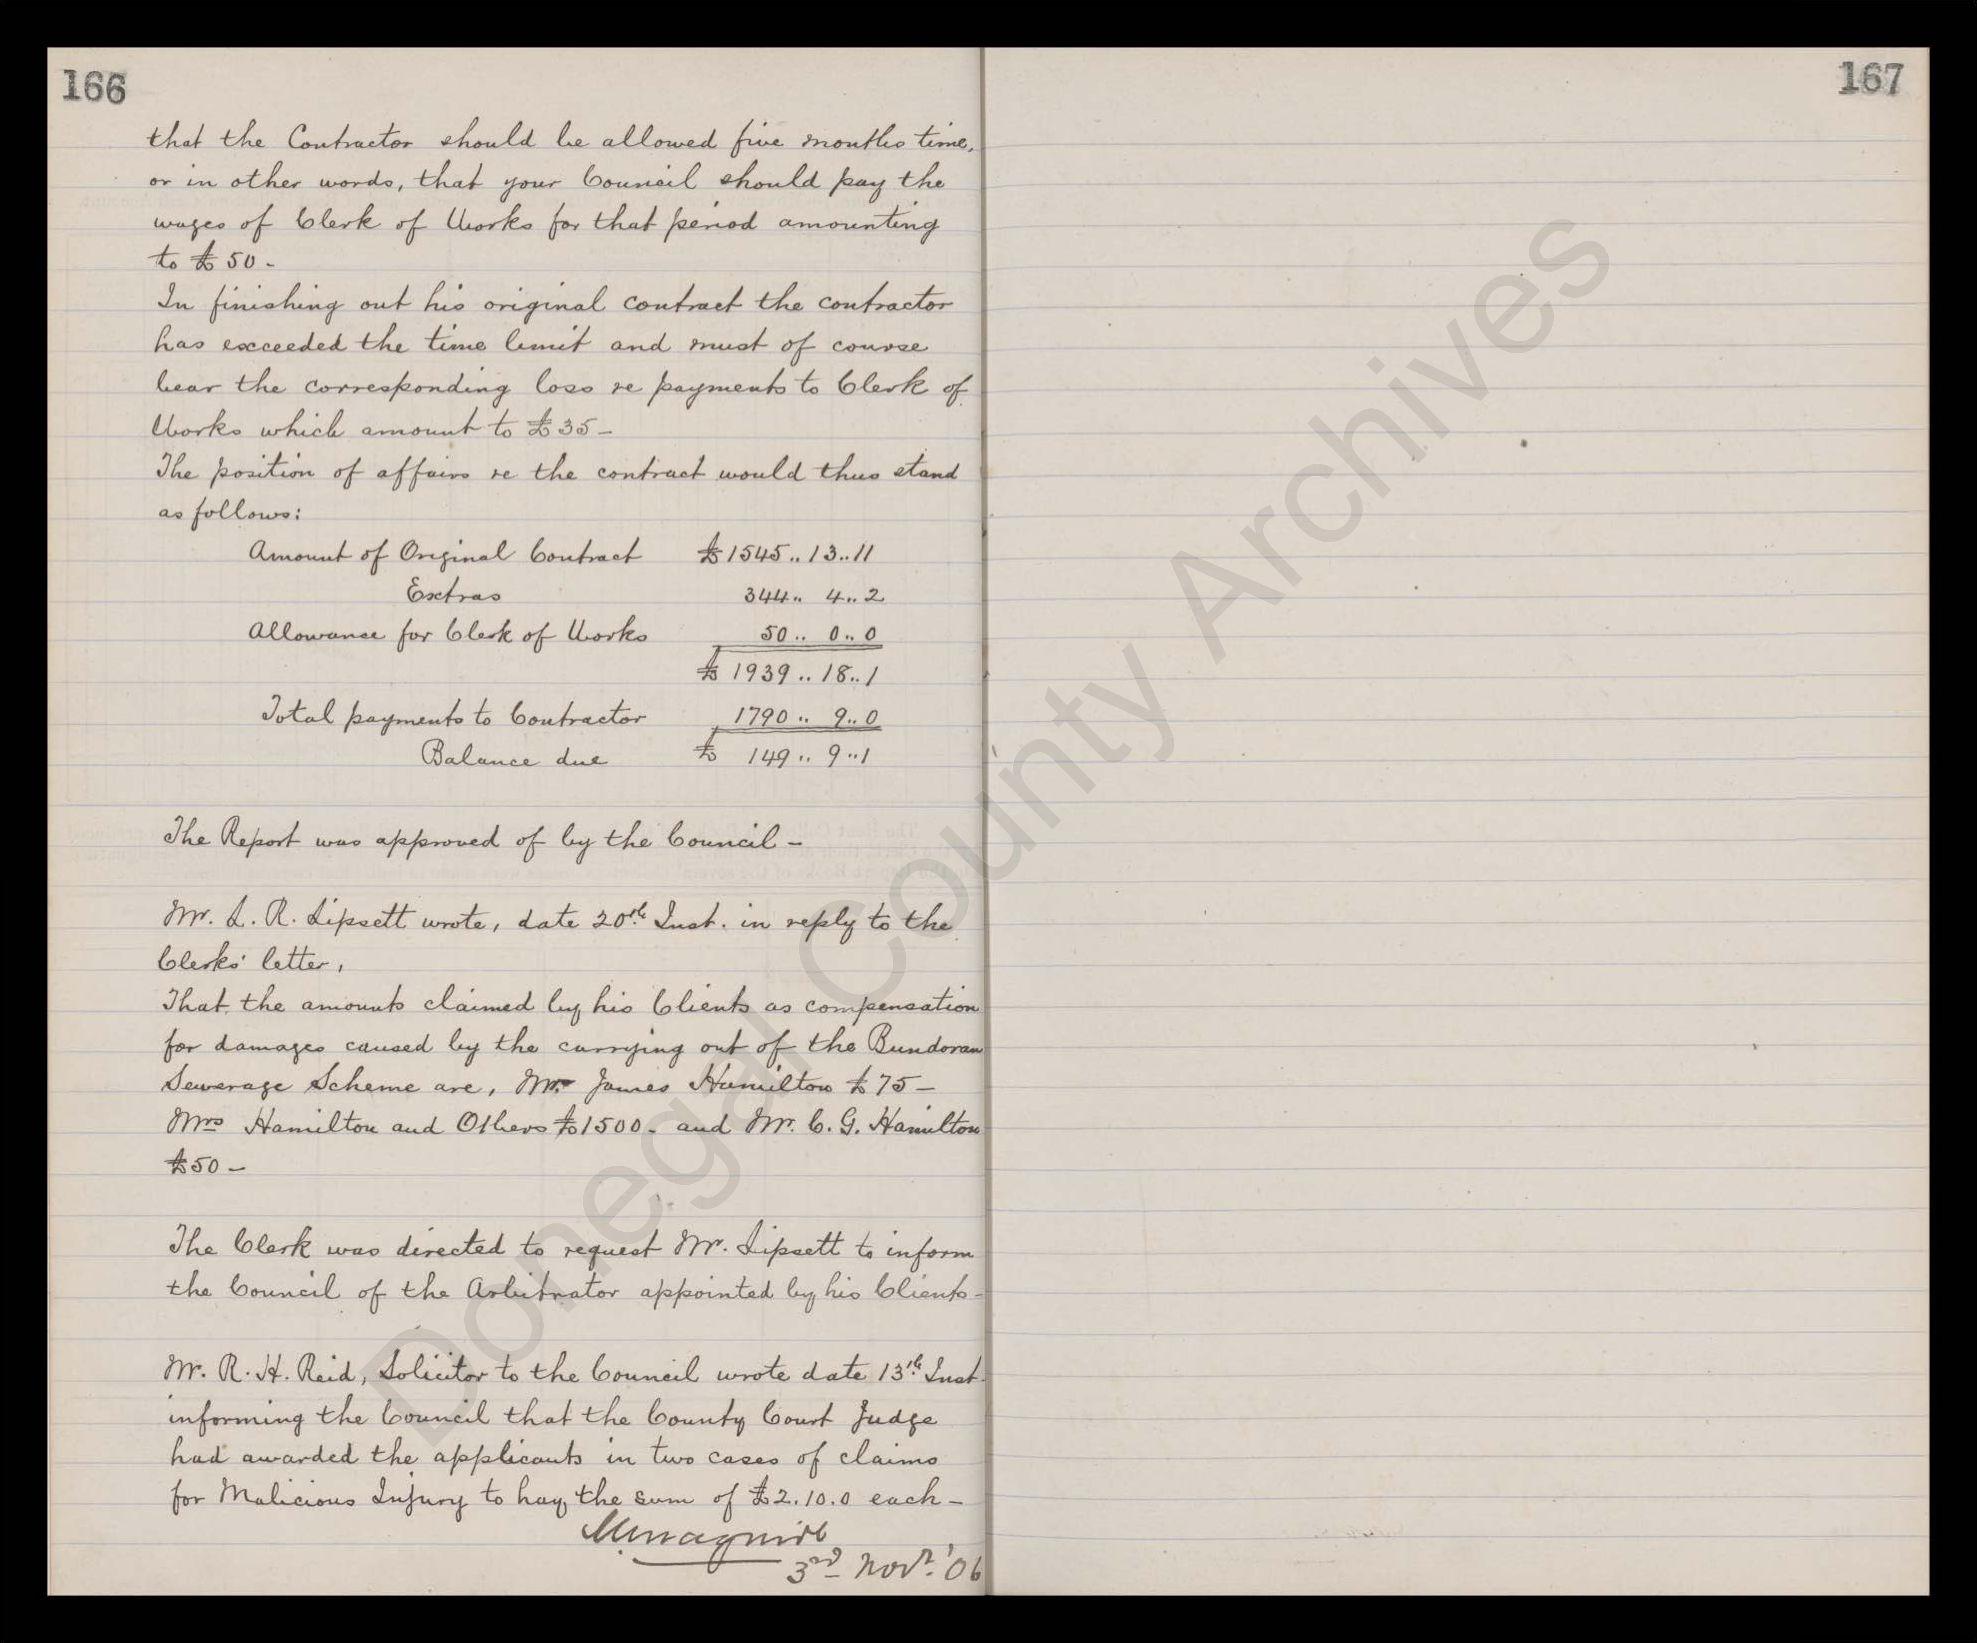 166
that the Contractor should be allowed five months time,
or in other words, that your Council should pay the
wages of Clerk of Works for that period amounting
to £50-
In finishing out his original contract the contractor
has exceeded the time limit and must of course
bear the corresponding loss re payments to Clerk of
Works which amount to £35-
The position of affairs re the contract would thus stand
as follows:
Amount of Original Contract £1545..13..11
Extras 344.. 4..2
Allowance for Clerk of Works 50.. 0..0
£ 1939..18..1
Total payments to Contractor 1790.. 9..0
Balance due £ 149.. 9..1
The Report was approved of by the Council-
Mr. L. R. Lipsett wrote, date 20th Inst. in reply to the
Clerks' letter,
That the amounts claimed by his Clients as compensation
for damages caused by the carrying out of the Bundoran
Sewerage Scheme are, Mr James Hamilton £75-
Mrs Hamilton and Others £1500- and Mr. C. G. Hamilton
£50-
The Clerk was directed to request Mr. Lipsett to inform
the Council of the Arbitrator appointed by his Clients-
Mr. R. H. Reid, Solicitor to the Council wrote date 13th Inst.
informing the Council that the County Court Judge
had awarded the applicants in two cases of claims
for Malicious Injury to hay, the sum of £2.10.0 each-
3rd Novr. '06
167
Donegal County Archives